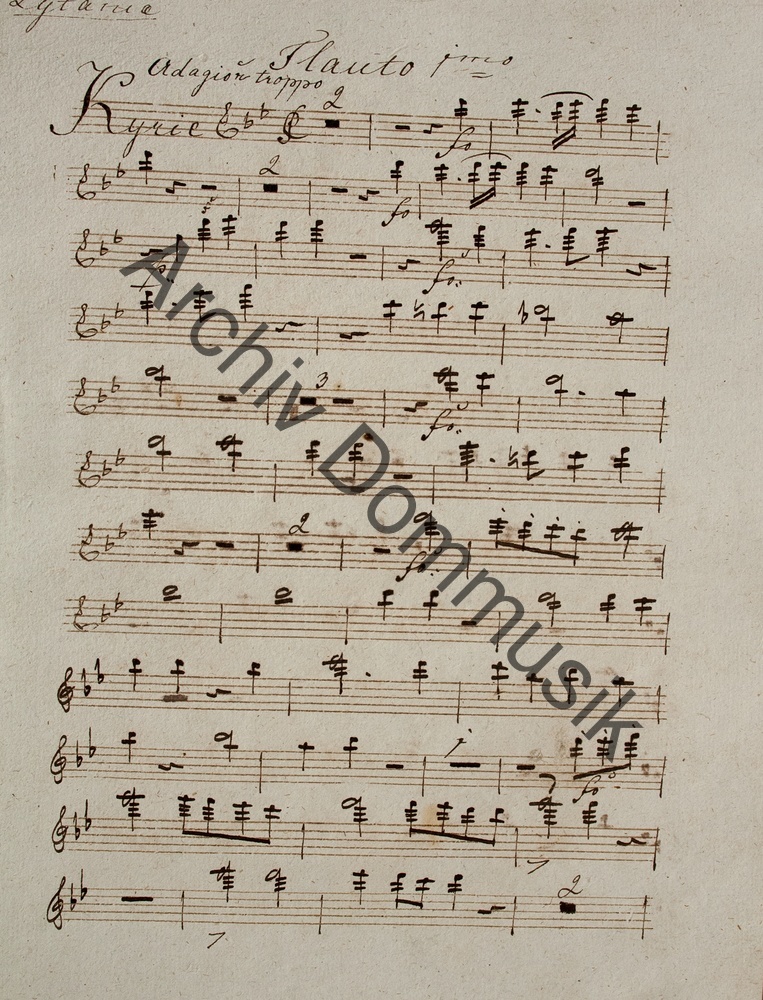 Lytaniae
Flauto imo
Adagio non troppo
Kyrie 2
fo
2
fo
fo.
fo.
3
fo.
2
fo.
1
fo
2
Archiv Dommusik